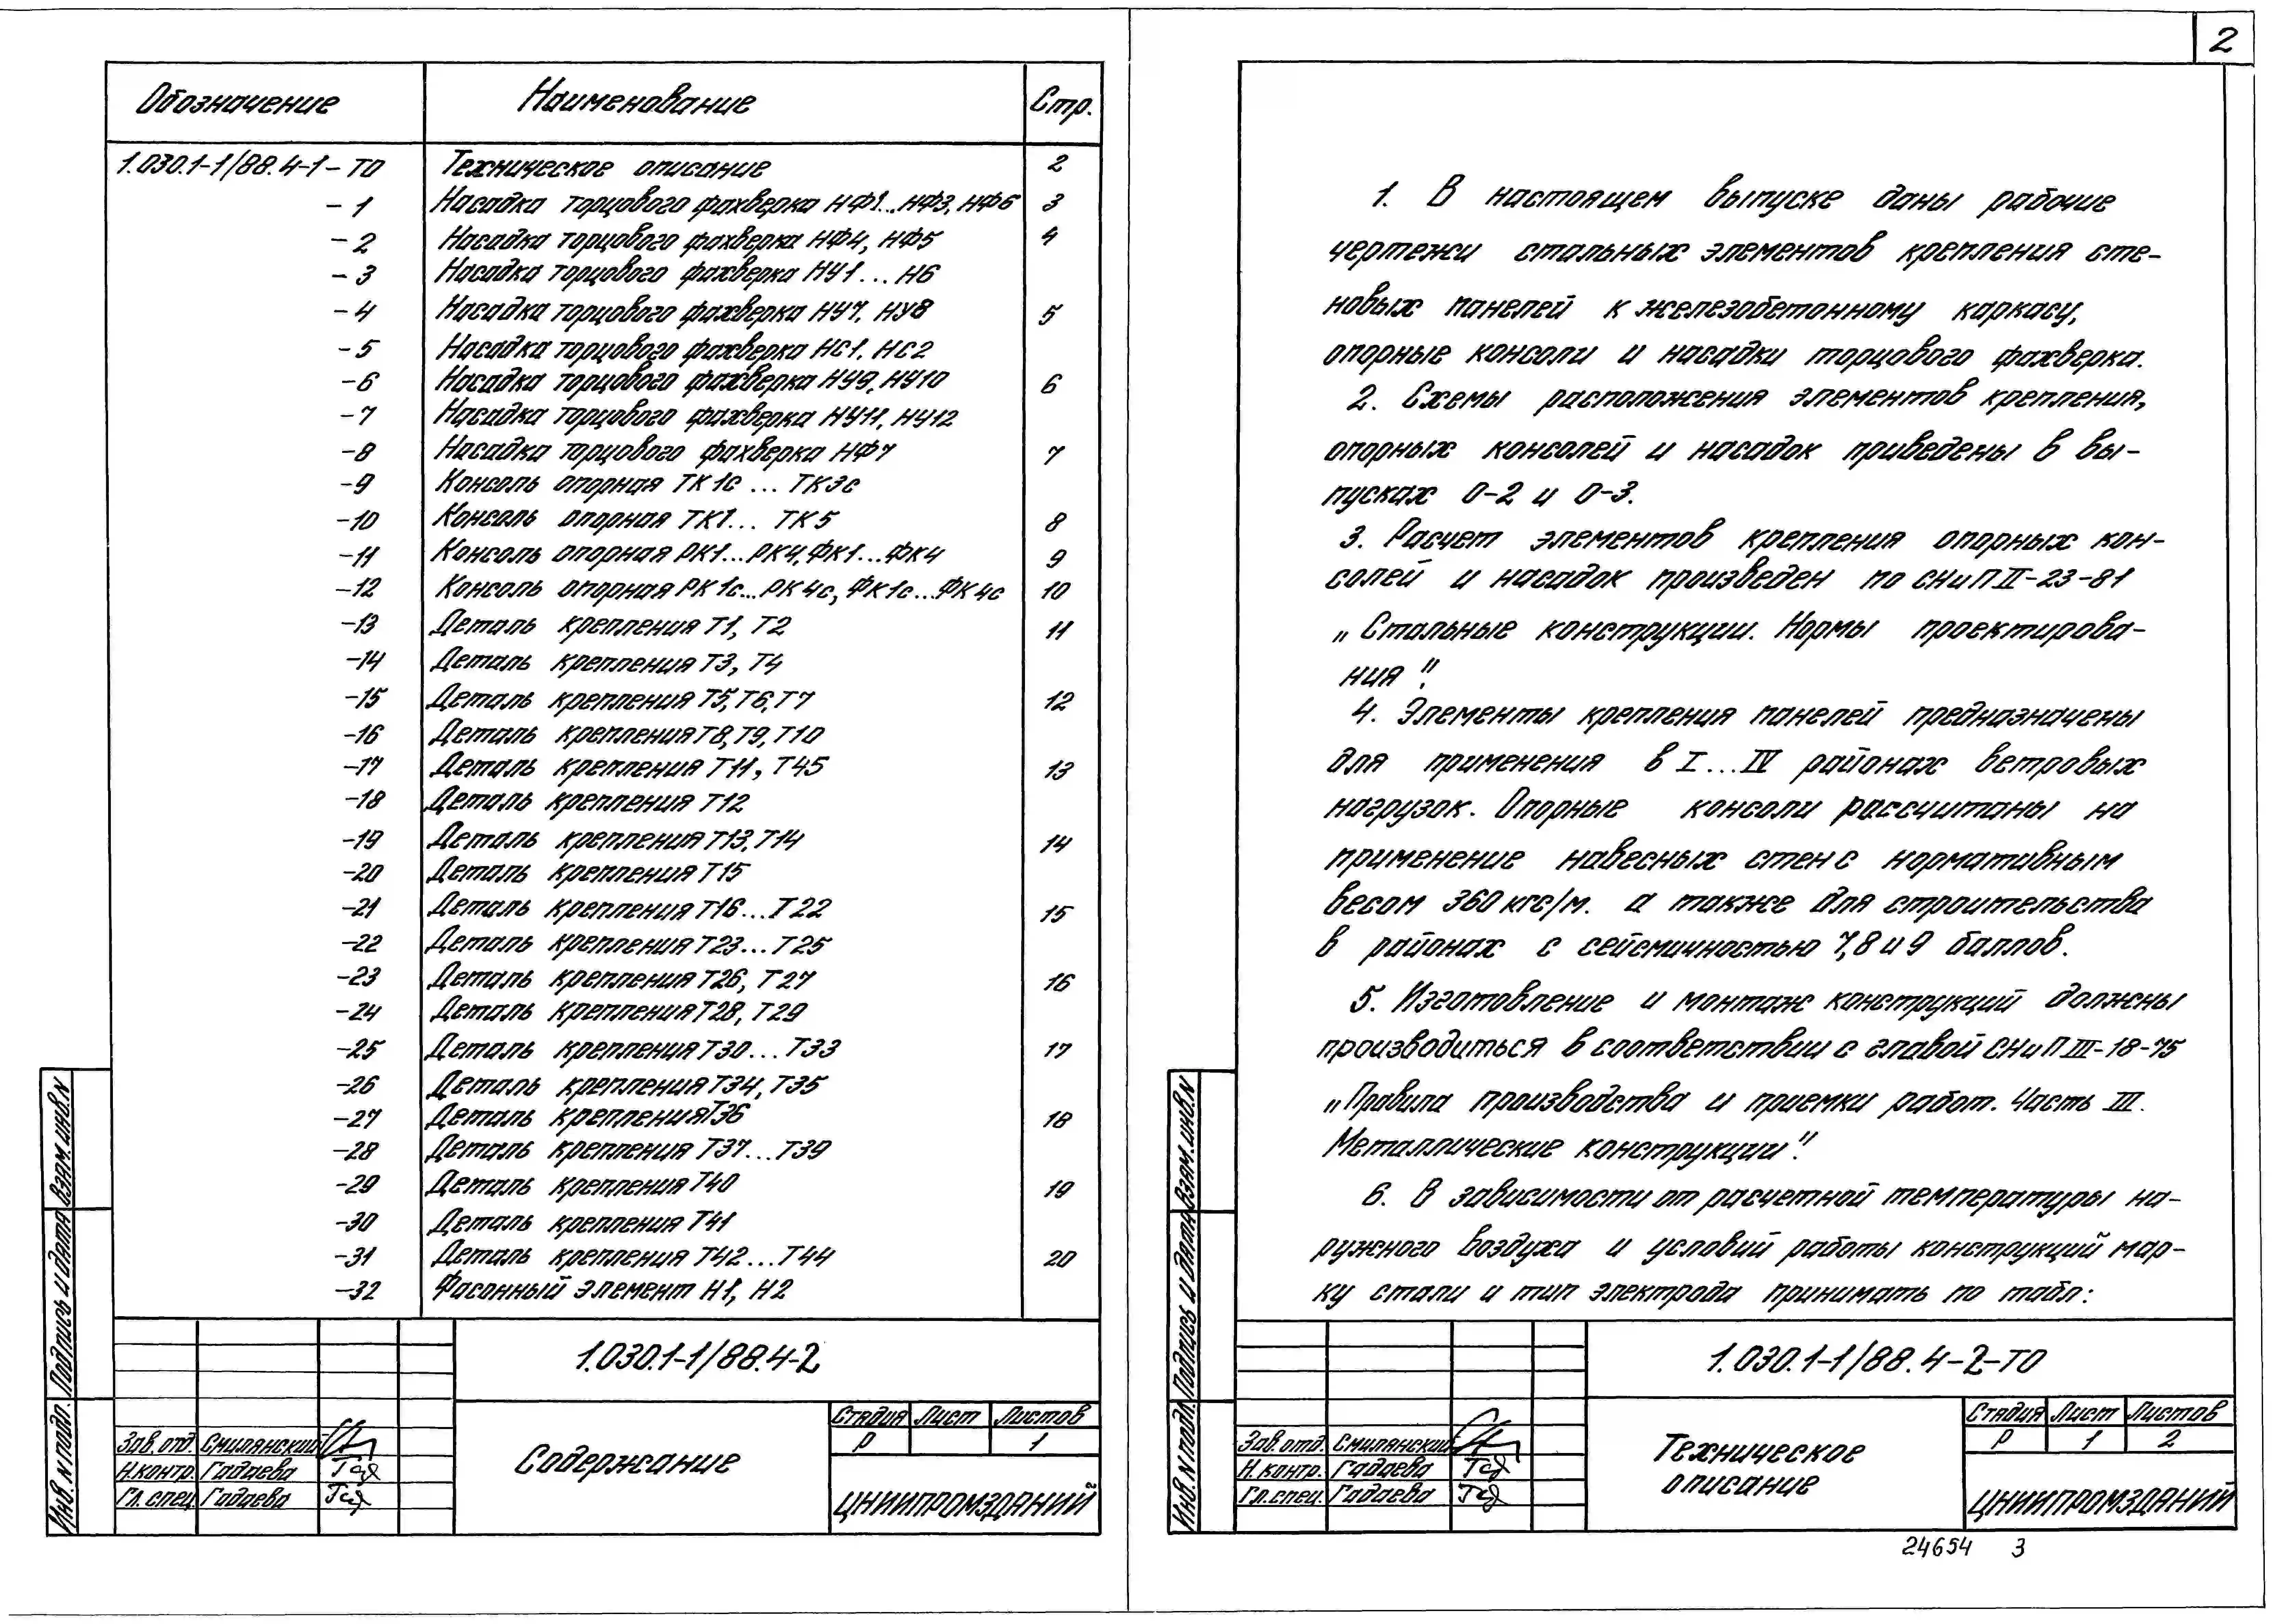 Обозначение Наименование Стр.
1.030.1-1/88.4-1-ТО Техническое описание 2
-1 Насадка торцового фахверка НФ1...НФ3, НФ6 3
-2 Насадка торцового фахверка НФ4, НФ5 4
-3 Насадка торцового фахверка НУ1...Н6
-4 Насадка торцового фахверка НУ7, НУ8 5
-5 Насадка торцового фахверка НС1, НС2
-6 Насадка торцового фахверка НУ9, НУ10 6
-7 Насадка торцового фахверка НУ11, НУ12
-8 Насадка торцового фахверка НФ7 7
-9 Консоль опорная ТК1с ... ТК3с
-10 Консоль опорная ТК1... ТК5 8
-11 Консоль опорная РК1...РК4, ФК1...ФК4 9
-12 Консоль опорная РК1с...РК4с, ФК1с...ФК4с 10
-13 Деталь крепления Т1, Т2 11
-14 Деталь крепления Т3, Т4
-15 Деталь крепления Т5, Т6, Т7 12
-16 Деталь крепления Т8, Т9, Т10
-17 Деталь крепления Т11, Т45 13
-18 Деталь крепления Т12
-19 Деталь крепления Т13, Т14 14
-20 Деталь крепления Т15
-21 Деталь крепления Т16...Т22 15
-22 Деталь крепления Т23...Т25
-23 Деталь крепления Т26, Т27 16
-24 Деталь крепления Т28, Т29
-25 Деталь крепления Т30...Т33 17
-26 Деталь крепления Т34, Т35
-27 Деталь крепления Т36 18
-28 Деталь крепления Т37...Т39
-29 Деталь крепления Т40 19
-30 Деталь крепления Т41
-31 Деталь крепления Т42...Т44 20
-32 Фасонный элемент Н1, Н2
1.030.1-1/88.4-2
Стадия Лист Листов
Р 1
Зав. отд. Смилянский
Н.контр. Гадаева
Гл. спец. Гадаева
Содержание
ЦНИИПРОМЗДАНИЙ
Взам. инв. N
Подпись и дата
Инв. N подл.
2
1. В настоящем выпуске даны рабочие
чертежи стальных элементов крепления сте-
новых панелей к железобетонному каркасу,
опорные консоли и насадки торцового фахверка.
2. Схемы расположения элементов крепления,
опорных консолей и насадок приведены в вы-
пусках 0-2 и 0-3.
3. Расчет элементов крепления опорных кон-
солей и насадок произведен по СНиП II-23-81
„Стальные конструкции. Нормы проектирова-
ния".
4. Элементы крепления панелей предназначены
для применения в I...IV районах ветровых
нагрузок. Опорные консоли рассчитаны на
применение навесных стен с нормативным
весом 360 кгс/м. а также для строительства
в районах с сейсмичностью 7, 8 и 9 баллов.
5. Изготовление и монтаж конструкций должны
производиться в соответствии с главой СНиП III-18-75
„Правила производства и приемки работ. Часть III.
Металлические конструкции".
6. В зависимости от расчетной температуры на-
ружного воздуха и условий работы конструкций мар-
ку стали и тип электрода принимать по табл:
1.030.1-1/88.4-2-ТО
Стадия Лист Листов
Р 1 2
Зав. отд. Смилянский
Н. контр. Гадаева
Гл. спец. Гадаева
Техническое
описание
ЦНИИПРОМЗДАНИЙ
Взам. инв. N
Подпись и дата
Инв. N подл.
24654 3